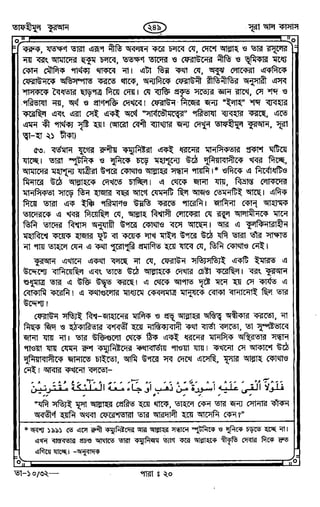 তাফহীমুল কুরআন
২৪৯
সূরা আল কাসাস
করুক, যতক্ষণ তারা এরূপ নীতি অবলম্বন করে চলবে যে, দেশে আল্লাহ ও তার রসূলের
নয় বরং আমাদের হুকুম চলবে, ততক্ষণ তাদের ও ফেরাউনের নীতি ও ভূমিকার মধ্যে
কোন মৌলিক পার্থক্য থাকবে না। এটা ভিন্ন কথা যে, অবুঝ লোকেরা একদিকে
ফেরাউনকে অভিসম্পাত করতে থাকে, অন্যদিকে ফেরাউনী রীতিনীতির অনুসারী এসব
শাসককে বৈধতার ছাড়পত্র দিয়ে দেয়। যে ব্যক্তি প্রকৃত সত্যের জ্ঞান রাখে, সে শব্দ ও
পরিভাষা নয়, অর্থ ও প্রাণশক্তি দেখবে। ফেরাউন নিজের জন্য "ইলাহ" শব্দ ব্যবহার
করেছিল এবং এরা সেই একই অর্থে "সার্বভৌমত্বের" পরিভাষা ব্যবহার করছে, এতে
এমন কী পার্থক্য সৃষ্টি হয়! (আরো বেশী ব্যাখ্যার জন্য দেখুন তাফহীমুল কুরআন, সূরা
ত্বা-হা ২১ টীকা)
৫৩. বর্তমান যুগের রুশীয় কমুনিষ্টরা একই ধরনের মানসিকতার প্রকাশ ঘটিয়ে
যাচ্ছে। তারা স্পুটনিক ও লুনিকে চড়ে মহাশূন্যে উঠে দুনিয়াবাসীকে খবর দিচ্ছে,
আমাদের মহাশূন্য যাত্রীরা উপরে কোথাও আল্লাহর সন্ধান পায়নি।* ওদিকে এ নির্বোধটিও
মিনারে উঠে আল্লাহকে দেখতে চাচ্ছিল। এ থেকে জানা যায়, বিভ্রান্ত লোকদের
মানসিকতা সাড়ে তিন হাজার বছর আগে যেমনটি ছিল আজও তেমনটিই আছে। এদিক
দিয়ে তারা এক ইঞ্চি পরিমাণও উন্নতি করতে পারেনি। জানিনা কোন্ আহাম্মক
তাদেরকে এ খবর দিয়েছিল যে, আল্লাহ বিশ্বাসী লোকেরা যে রব্বুল আলামীনকে মানে
তিনি তাদের বিশ্বাস অনুযায়ী উপরে কোথাও বসে আছেন। আর এ কূলকিনারাহীন
মহাবিশ্বে কয়েক হাজার ফুট বা কয়েক লাখ মাইল উপরে উঠে যদি তারা তাঁর সাক্ষাত
না পায় তাহলে যেন এ কথা পুরোপুরি প্রমাণিত হয়ে যাবে যে, তিনি কোথাও নেই।
কুরআন এখানে একথা বলছে না যে, ফেরাউন সত্যিসত্যিই একটি ইমারত এ
উদ্দেশ্যে বানিয়েছিল এবং তাতে উঠে আল্লাহকে দেখার চেষ্টা করেছিল। বরং কুরআন
শুধুমাত্র তার এ উক্তি উদ্ধৃত করছে। এ থেকে আপাত দৃষ্টে মনে হয় সে কার্যত এ
বোকামি করেনি। এ কথাগুলোর মাধ্যমে কেবলমাত্র মানুষকে বোকা বানানোই ছিল তার
উদ্দেশ্য।
ফেরাউন সত্যিই বিশ্ব-জাহানের মালিক ও প্রভু আল্লাহর অস্তিত্ব অস্বীকার করতো, না
নিছক জিদ ও হঠকারিতার বশবর্তী হয়ে নাস্তিক্যবাদী কথা বার্তা বলতো, তা সুস্পষ্টভাবে
জানা যায় না। তার উক্তিগুলো থেকে ঠিক একই ধরনের মানসিক অস্থিরতার সন্ধান
পাওয়া যায় যেমন রুশ কমুনিষ্টদের কথাবার্তায় পাওয়া যায়। কখনো সে আকাশে উঠে
দুনিয়াবাসীকে জানাতে চাইতো, আমি উপরে সব দেখে এসেছি, মূসার আল্লাহ কোথাও
নেই। আবার কখনো বলতো–
فَلَوْلَآ أُلْقِىَ عَلَيْهِ أَسْوِرَةٌ مِّن ذَهَبٍ أَوْ جَآءَ مَعَهُ الْمَلَٰٓئِكَةُ مُقْتَرِنِينَ
"যদি সত্যিই মূসা আল্লাহর প্রেরিত হয়ে থাকে, তাহলে কেন তার জন্য সোনার কাঁকন
অবতীর্ণ হয়নি অথবা ফেরেশতারা তার আরদালী হয়ে আসেনি কেন?"
তা-১০/৩২—
পারা ঃ ২০